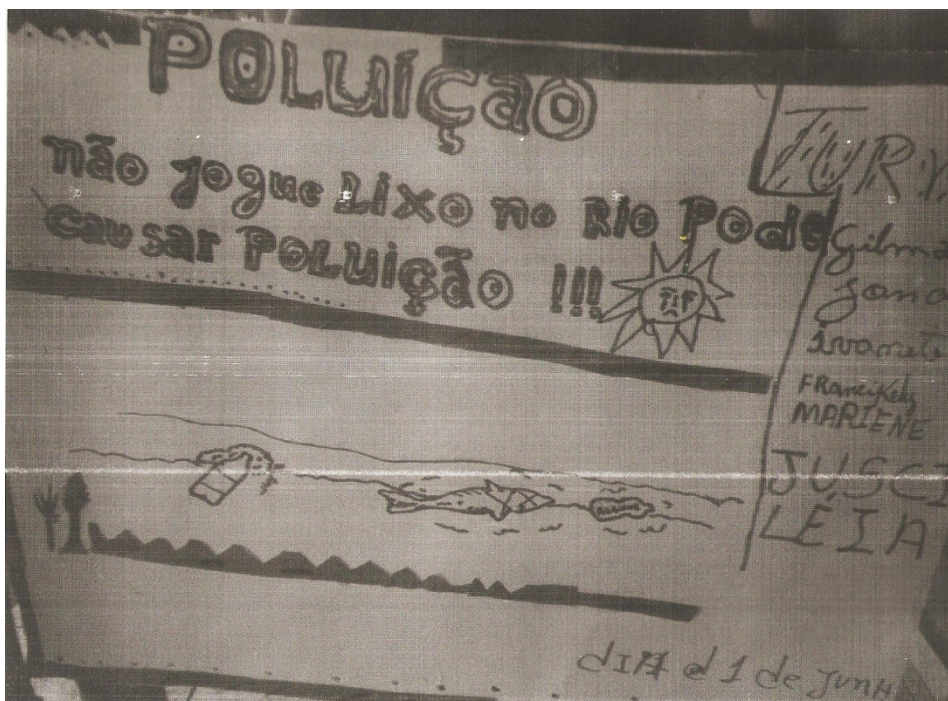 POLUIÇÃO
não jogue LiXO no RIO PODE
causar POLUIÇÃO !!!
Gilma
Jana
ivanete
FRanciKely
MARIENE
JUSCI
LÉIA
dIA d 1 de JUNH